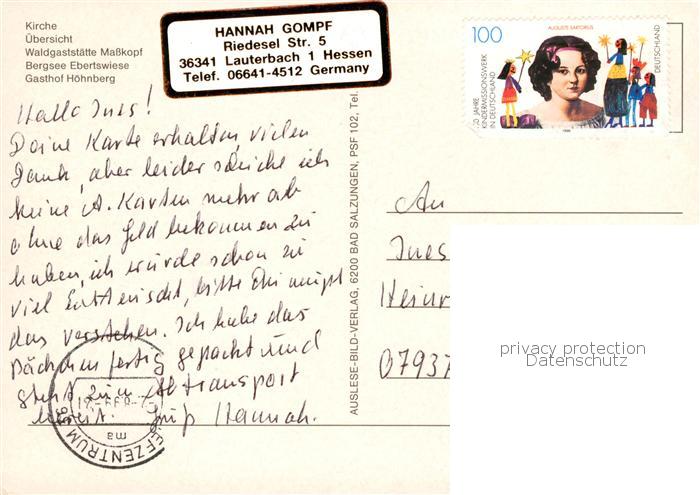 Kirche
Übersicht
Waldgaststätte Maßkopf
Bergsee Ebertswiese
Gasthof Höhnberg
HANNAH GOMPF
Riedesel Str. 5
36341 Lauterbach 1 Hessen
Telef. 06641-4512 Germany
100
AUGUSTE SARTORIUS
DEUTSCHLAND
JAHRE
KINDERMISSIONSWERK
IN DEUTSCHLAND
1996
Hallo Ines!
Deine Karte erhalten, vielen
Dank, aber leider schicke ich
keine A. Karten mehr ab
ohne das Geld bekommen zu
haben, ich wurde schon zu
viel Enttäuscht, bitte Du mußt
das verstehen. Ich habe das
Päckchen fertig gepackt und
steht zum Abtransport
bereit. Gruß Hannah.
AUSLESE-BILD-VERLAG, 6200 BAD SALZUNGEN, PSF 102, Tel.
An
Ines
Heinr
07937
privacy protection
Datenschutz
EFZENTRUM
ma